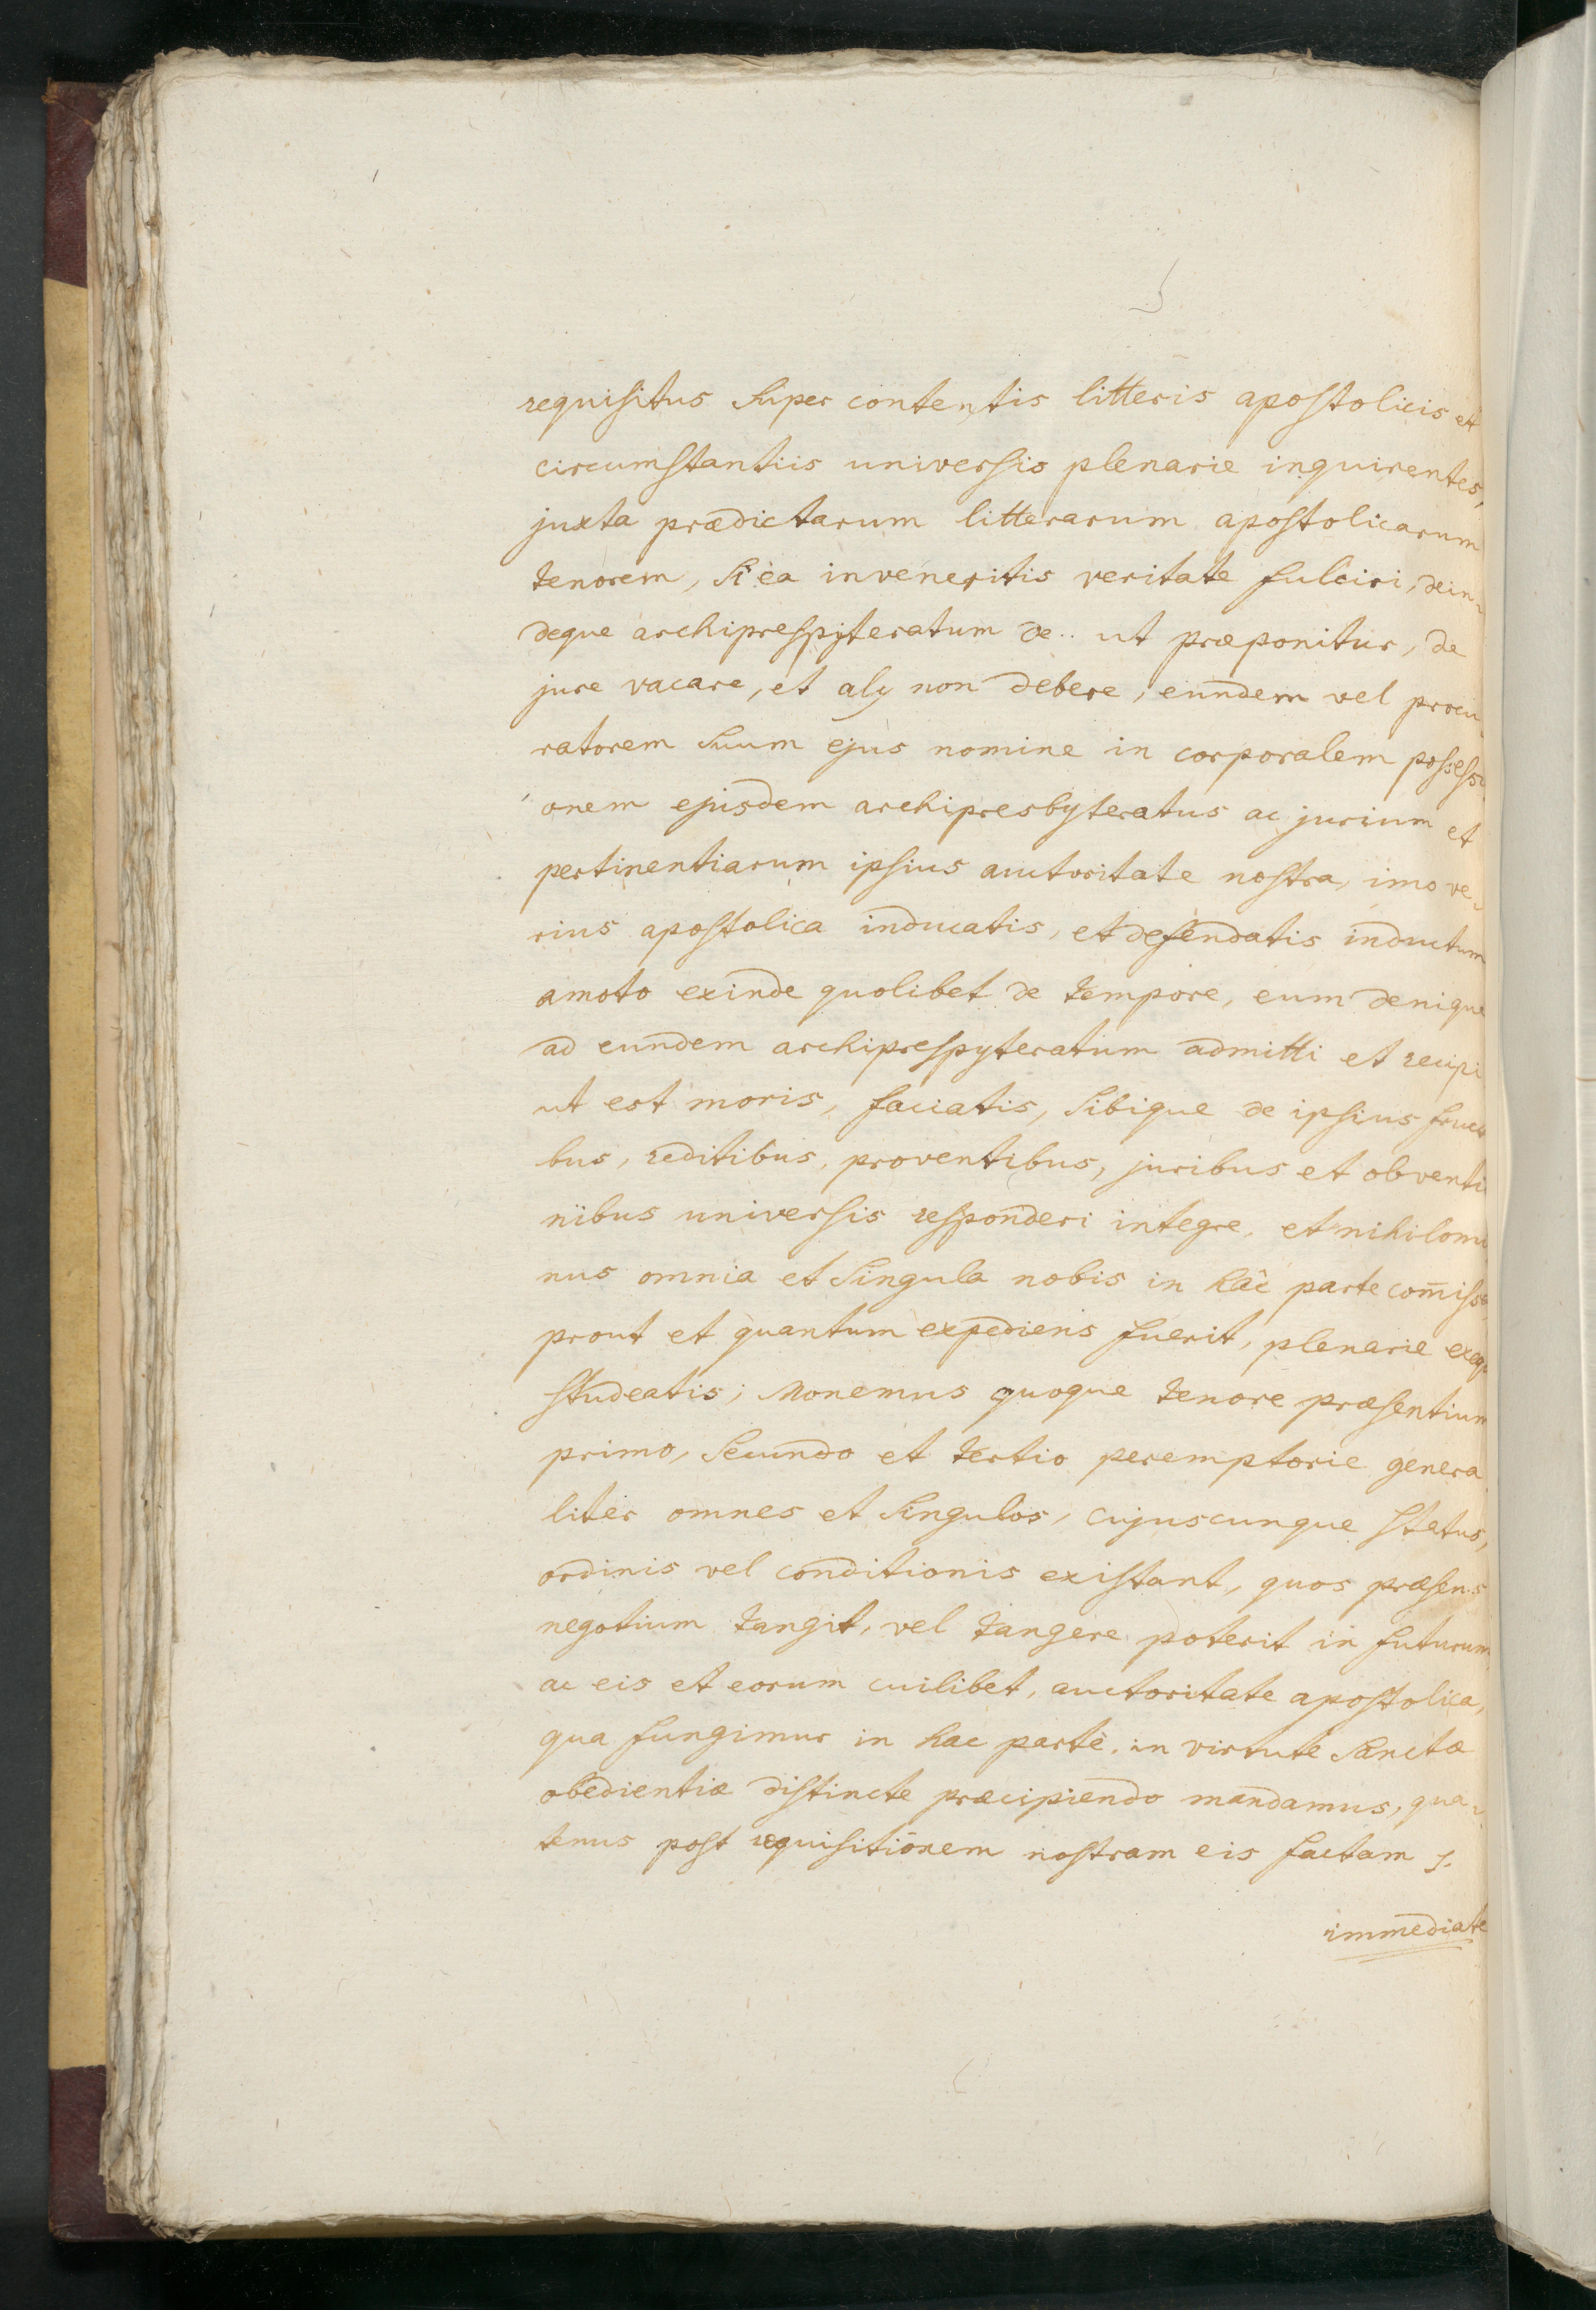 requisitus super contentis litteris apostolicis et
circumstantiis universis plenarie inquirentes,
juxta prædictarum litterarum apostolicarum
tenorem, si ea inveneritis veritate fulciri, dein-
deque archiprespyteratum de .. ut præponitur, de
jure vacare, et alij non debere, eundem vel procu
ratorem suum ejus nomine in corporalem possessi
onem ejusdem archipresbyteratus ac jurium et
pertinentiarum ipsius auctoritate nostra, imo ve-
rius apostolica inducatis, et defendatis inductum
amoto exinde quolibet de tempore, eum denique
ad eundem archiprespyteratum admitti et recipi
ut est moris, faciatis, sibique de ipsius fructi
bus, reditibus, proventibus, juribus et obventio
nibus universis responderi integre, et nihilomi
nus omnia et singula nobis in hac parte com̄issa
prout et quantum expediens fuerit, plenarie exequi
studeatis; Monemus quoque tenore præsentium
primo, secundo et tertio peremptorie genera
liter omnes et singulos, cujuscunque status,
ordinis vel conditionis existant, quos præsens
negotium tangit, vel tangere poterit in futurum,
ac eis et eorum cuilibet, auctoritate apostolica,
qua fungimur in hac parte, in virtute sanctæ
obedientiæ districte præcipiendo mandamus, qua-
tenus post requisitionem nostram eis factam
immediate